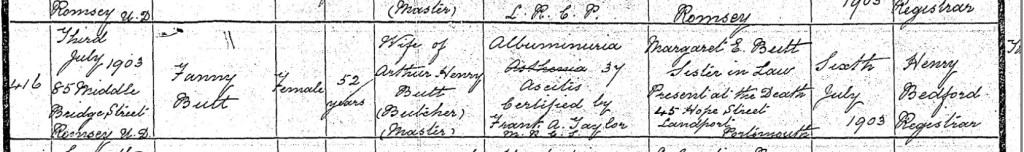 Romsey U.D (Master) L. R. C. P. Romsey 1903 Registrar
416
Third
July 1903
85 Middle
Bridge Street
Romsey U.D
Fanny
Butt
Female
52
years
Wife of
Arthur Henry
Butt
(Butcher)
(Master)
Albuminuria
Asthenia 3y
Ascitis
Certified by
Frank A. Taylor
M. R. C. S.
Margaret E. Butt
Sister in Law
Present at the Death
45 Hope Street
Landport
Portsmouth
Sixth
July
1903
Henry
Bedford
Registrar